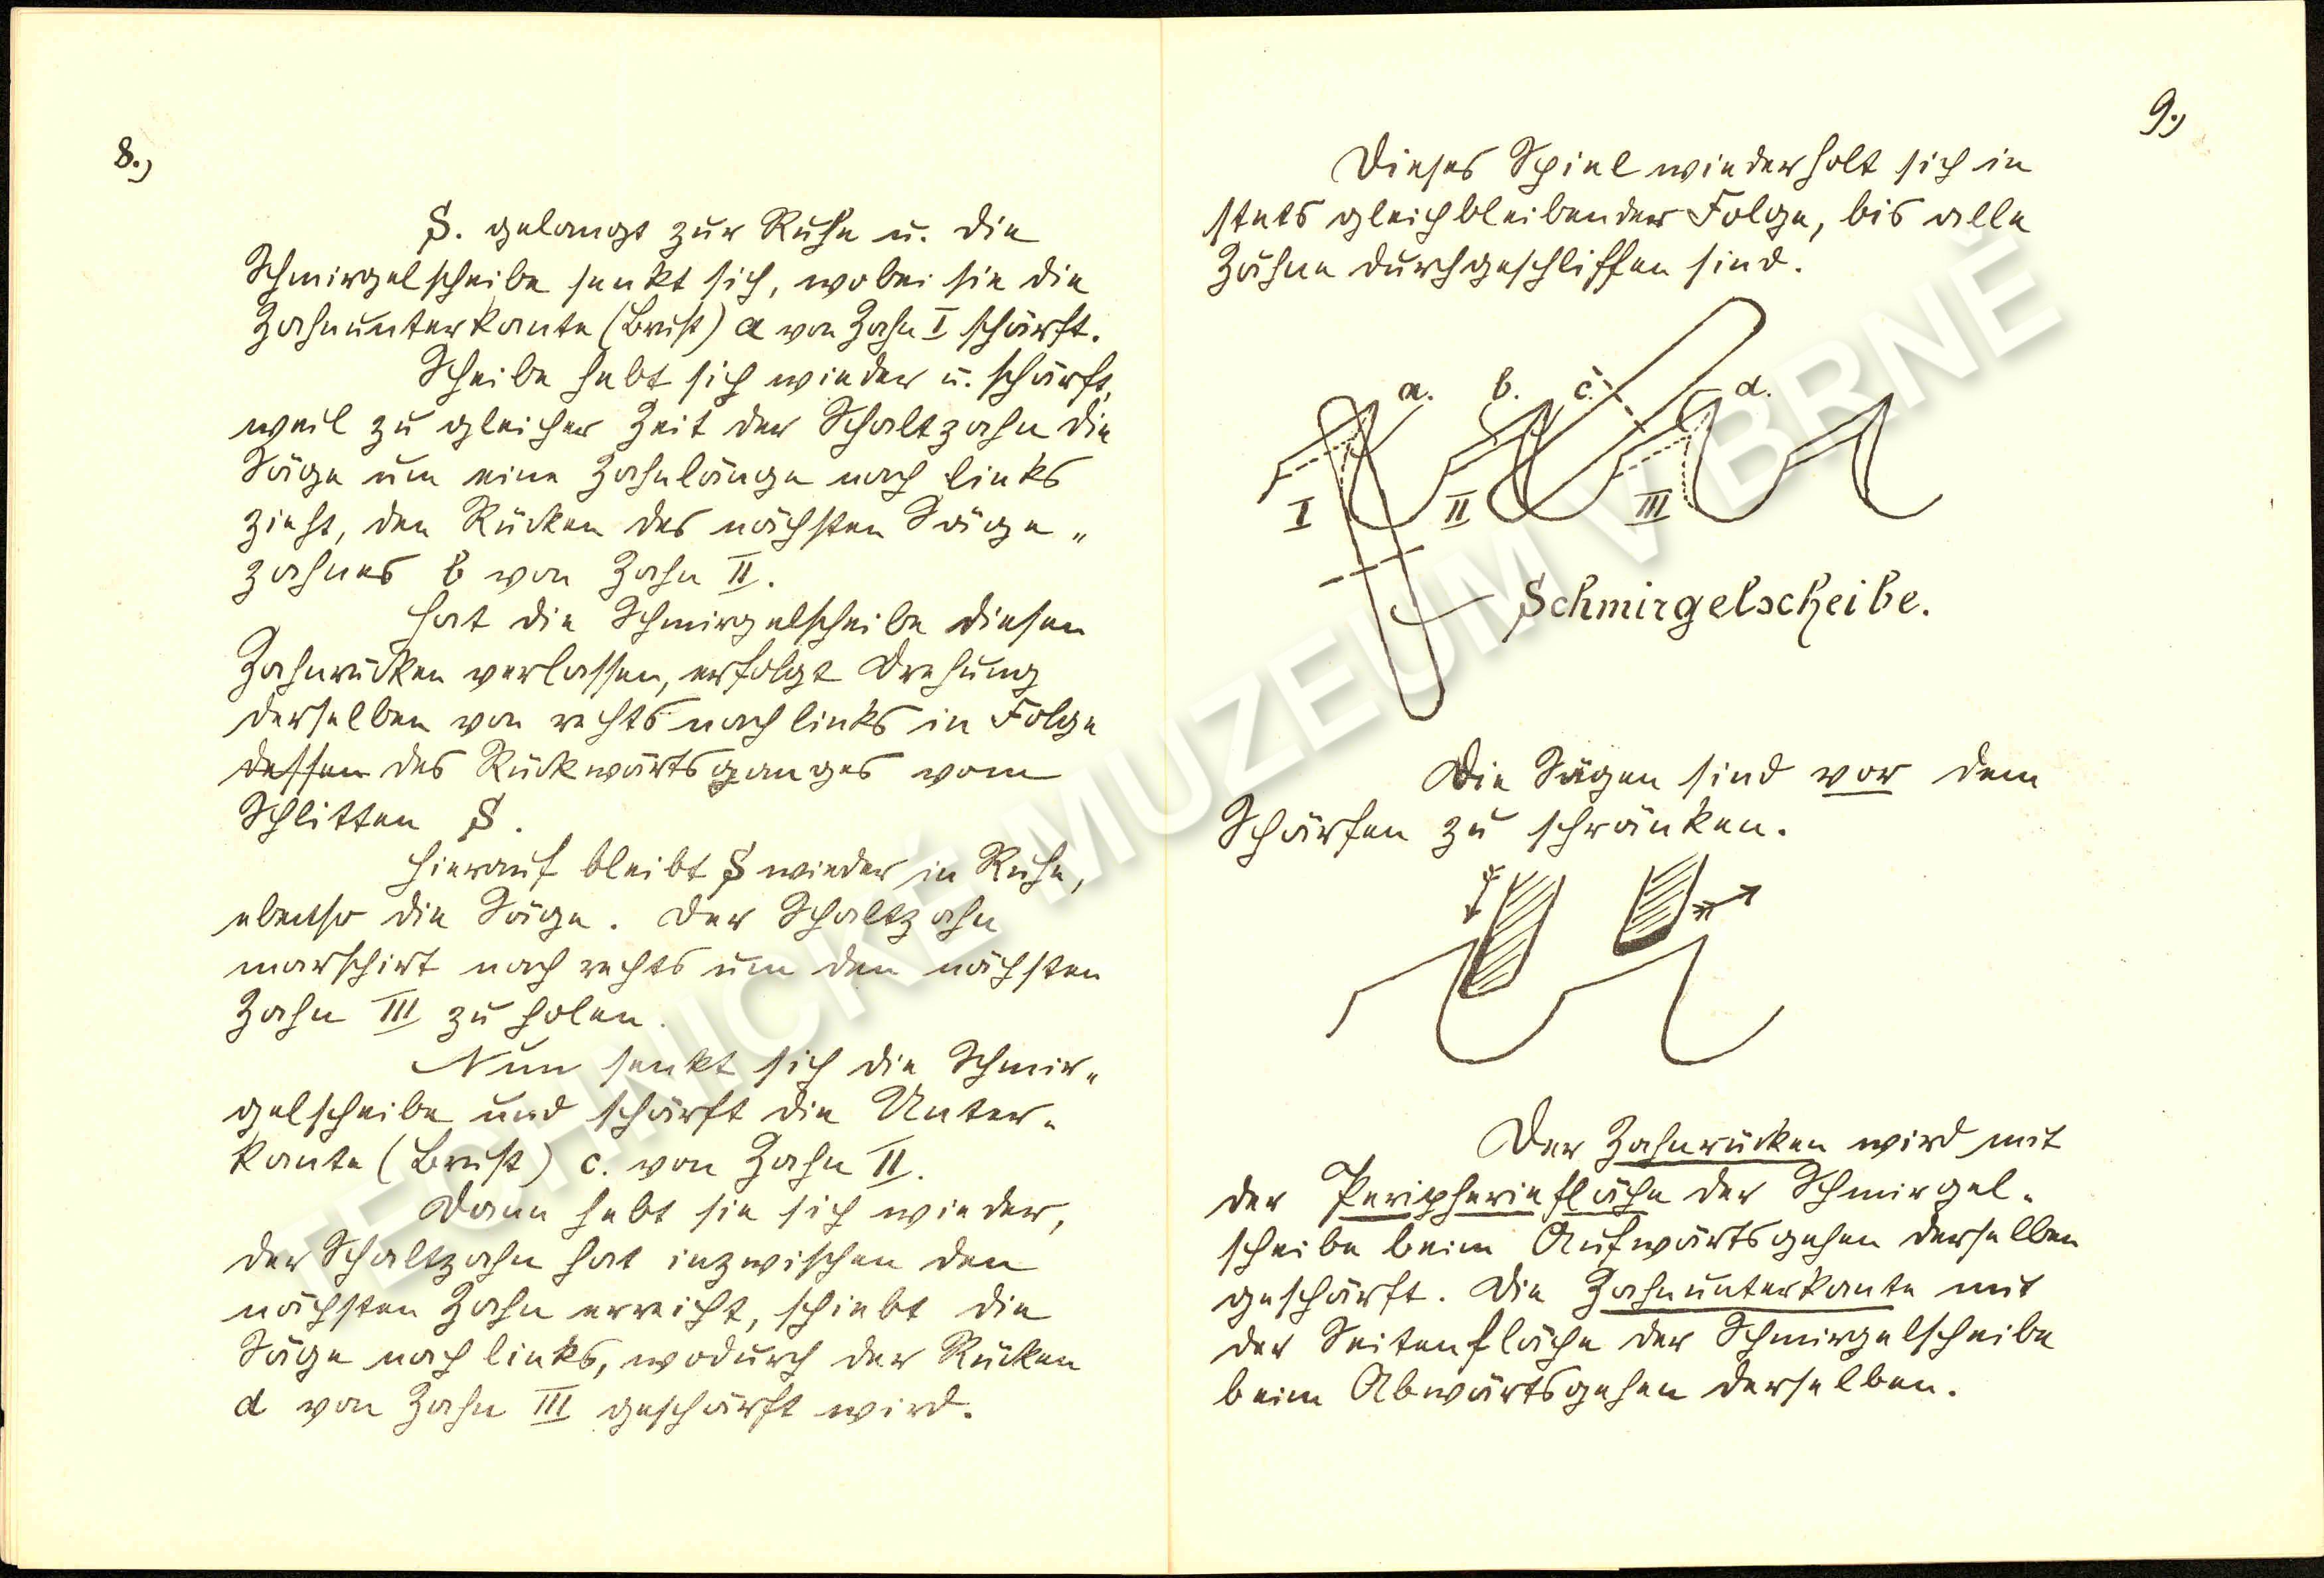 8.)
S. gelangt zur Ruhe u. die
Schmirgelscheibe senkt sich, wobei sie die
Zahnunterkante (Brust) a von Zahn I schärft.
Scheibe hebt sich wieder u. schärft,
weil zu gleicher Zeit der Schaltzahn die
Säge um eine Zahnlänge nach links
zieht, den Rücken des nächsten Säge„
zahnes b von Zahn II.
Hat die Schmirgelscheibe diesen
Zahnrücken verlassen, erfolgt Drehung
derselben von rechts nach links in Folge
dessen des Rückwärtsganges vom
Schlitten S.
Hierauf bleibt S wieder in Ruhe,
ebenso die Säge. Der Schaltzahn
marschirt nach rechts um den nächsten
Zahn III zu holen.
Nun senkt sich die Schmir„
gelscheibe und schärft die Unter„
kante (Brust) c. von Zahn II.
Dann hebt sie sich wieder,
der Schaltzahn hat inzwischen den
nächsten Zahn erreicht, schiebt die
Säge nach links, wodurch der Rücken
d von Zahn III geschärft wird.
9.)
Dieses Spiel wiederholt sich in
stets gleichbleibender Folge, bis alle
Zähne durchgeschliffen sind.
a. b. c. d.
I II III
Schmirgelscheibe.
Die Sägen sind vor dem
Schärfen zu schränken.
Der Zahnrücken wird mit
der Peripheriefläche der Schmirgel„
scheibe beim Aufwärtsgehen derselben
geschärft. Die Zahnunterkante mit
der Seitenfläche der Schmirgelscheibe
beim Abwärtsgehen derselben.
TECHNICKÉ MUZEUM V BRNĚ